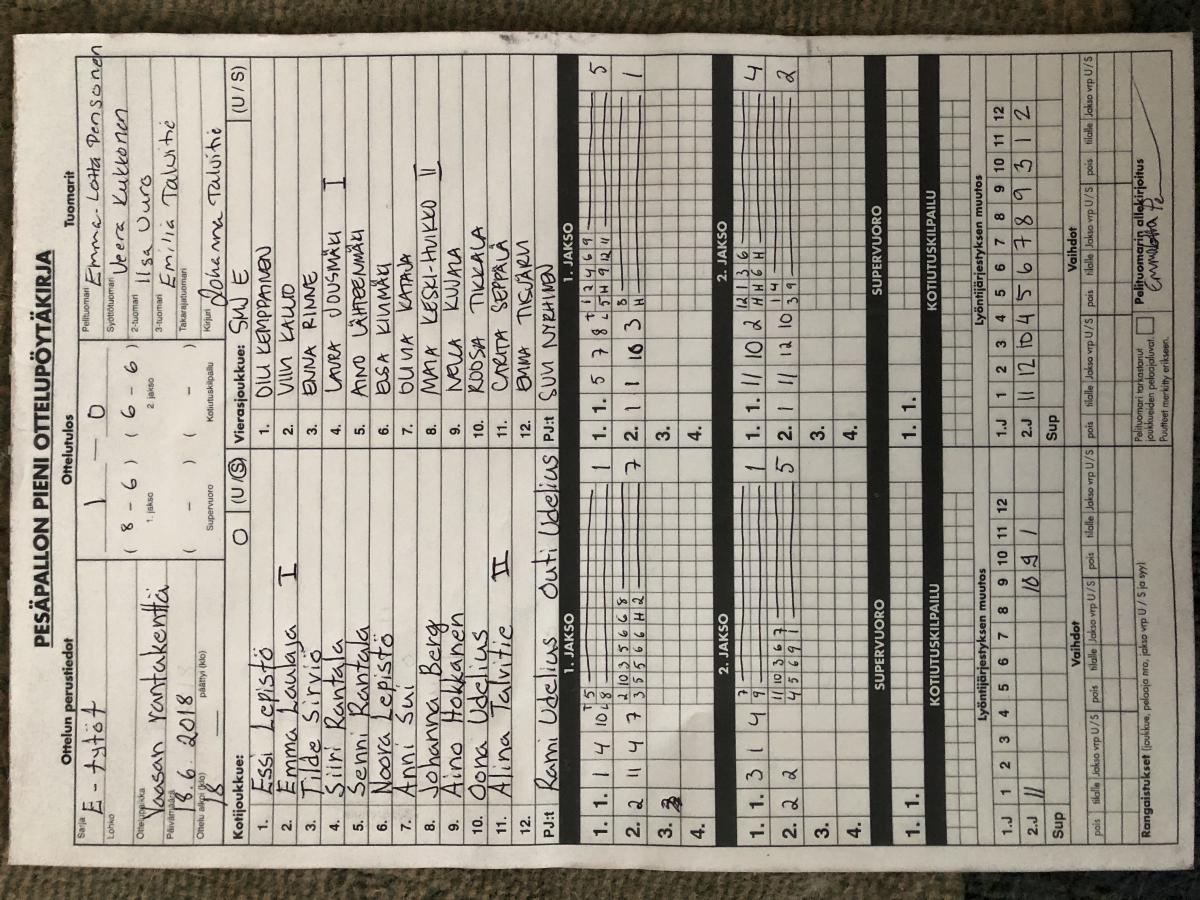 PESÄPALLON PIENI OTTELUPÖYTÄKIRJA
Ottelun perustiedot
Ottelutulos
Tuomarit
Sarja E-tytöt
Lohko
Ottelupaikka Vaasan rantakenttä
Päivämäärä 18.6.2018
Ottelu alkoi (klo) 18 päättyi (klo)
1 – 0
( 8 – 6 ) ( 6 – 6 )
1. jakso 2. jakso
( – ) ( – )
Supervuoro Kotiutuskilpailu
Pelituomari Emma-Lotta Pensonen
Syöttötuomari Veera Kukkonen
2-tuomari Ilsa Vuro
3-tuomari Emilia Talvitie
Takarajatuomari
Kirjuri Johanna Talvitie
Kotijoukkue: (U/S)
1. Essi Lepistö
2. Emma Laulaja I
3. Tilde Sirviö
4. Siiri Rantala
5. Senni Rantala
6. Noora Lepistö
7. Anni Sui
8. Johanna Berg
9. Aino Hakkanen
10. Oona Udelius
11. Alina Talvitie II
12.
PJ:t Rami Udelius Outi Udelius
Vierasjoukkue: SMJ E (U/S)
1. OILI KEMPPAINEN
2. VIIVI KALLIO
3. ENNA RINNE
4. LAURA JOUSMÄKI I
5. AINO LÄHTEENMÄKI
6. ELSA KIVIMÄKI
7. OLIVIA KATAVA
8. MAIJA KESKI-HUIKKO II
9. NELLA KUJALA
10. ROOSA TIKKALA
11. CARITA SEPPÄLÄ
12. EMMA TIISJÄRVI
PJ:t SUVI NYRHINEN
1. JAKSO
1. 1. 1 4 10 1
2. 2 11 4 7 7
2 10 3 5 6 6 8
3 5 6 6 H 2
3.
4.
1. JAKSO
1. 1. 5 7 8 5
2. 1 1 10 3 1
3.
4.
2. JAKSO
1. 1. 3 1 4 1
2. 2 2 5
11 10 3 6 7
4 5 6 9 1
3.
4.
2. JAKSO
1. 1. 11 10 2 4
12 1 3 6
H H 6 H
2. 1 11 12 10 2
1 4
3 9
3.
4.
SUPERVUORO
1. 1.
SUPERVUORO
1. 1.
KOTIUTUSKILPAILU
KOTIUTUSKILPAILU
Lyöntijärjestyksen muutos
1.J 1 2 3 4 5 6 7 8 9 10 11 12
2.J 11 10 9 1
Sup
Lyöntijärjestyksen muutos
1.J 1 2 3 4 5 6 7 8 9 10 11 12
2.J 11 12 10 4 5 6 7 8 9 3 1 2
Sup
Vaihdot
pois tilalle Jakso vrp U/S pois tilalle Jakso vrp U/S pois tilalle Jakso vrp U/S
Vaihdot
pois tilalle Jakso vrp U/S pois tilalle Jakso vrp U/S pois tilalle Jakso vrp U/S
Rangaistukset (joukkue, pelaaja nro, jakso vrp U / S ja syy)
Pelituomari tarkastanut
joukkueiden pelaajaluvat.
Puutteet merkitty erikseen.
Pelituomarin allekirjoitus